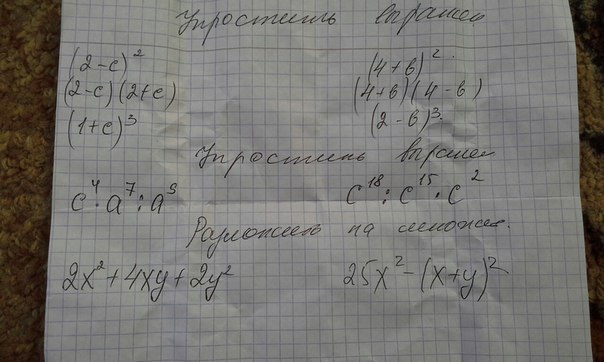 Упростить выражен
(2-c)² (4+b)²
(2-c)(2+c) (4+b)(4-b)
(1+c)³ (2-b)³
Упростить выражен
c⁴·a⁷:a⁵ c¹⁸:c¹⁵·c²
Разложить на множит.
2x²+4xy+2y² 25x²-(x+y)²